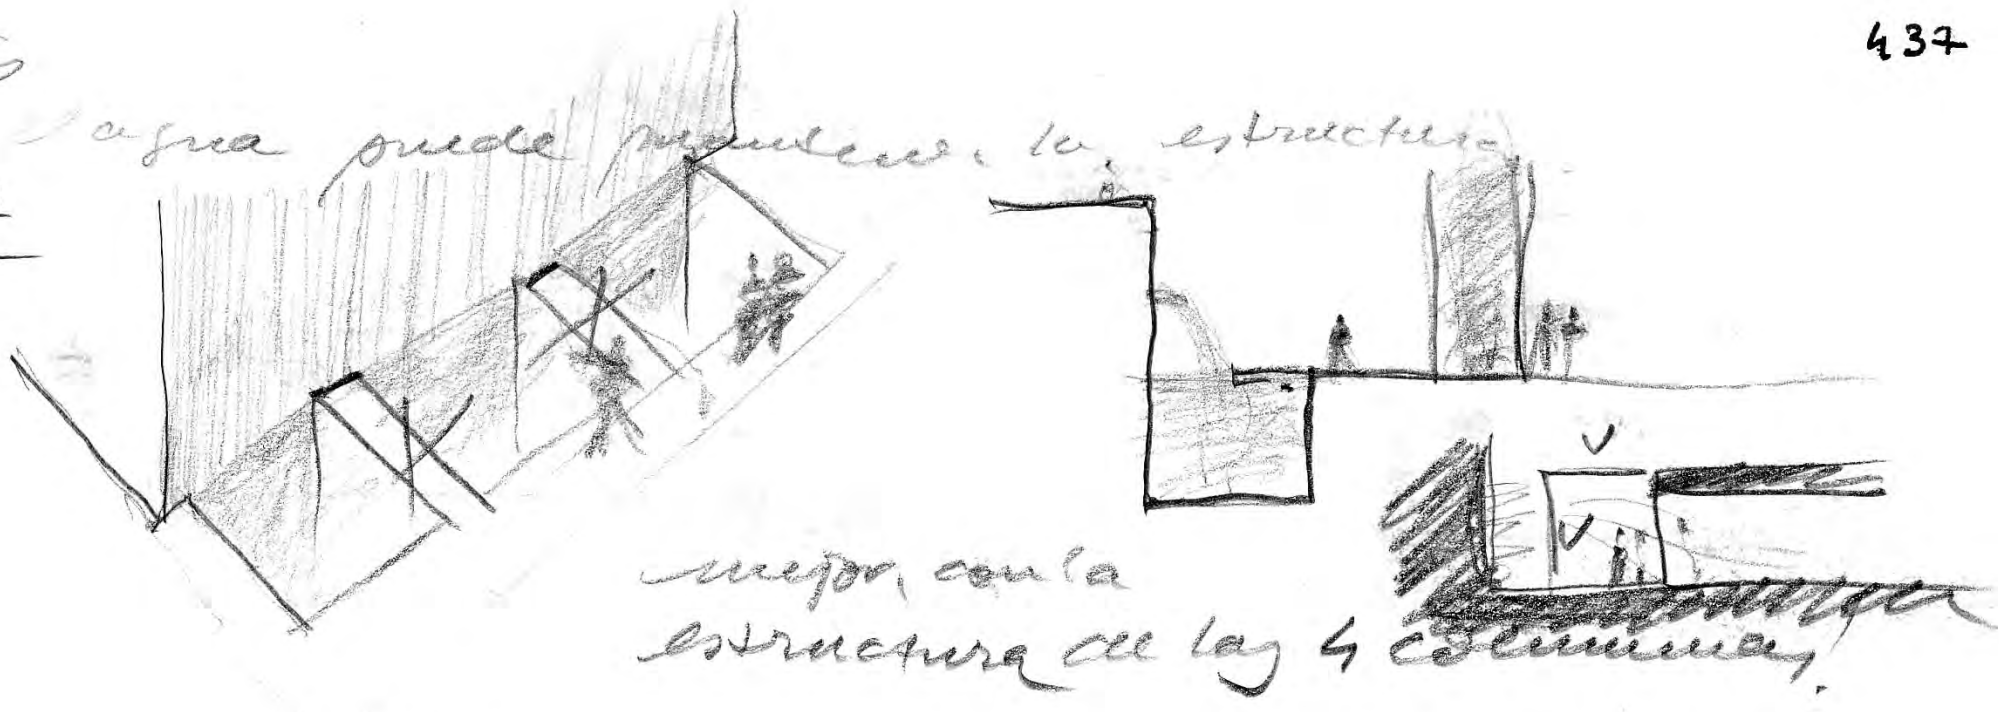 437
agua puede mantener la estructura
mejor, con la
estructura de las 4 columnas.